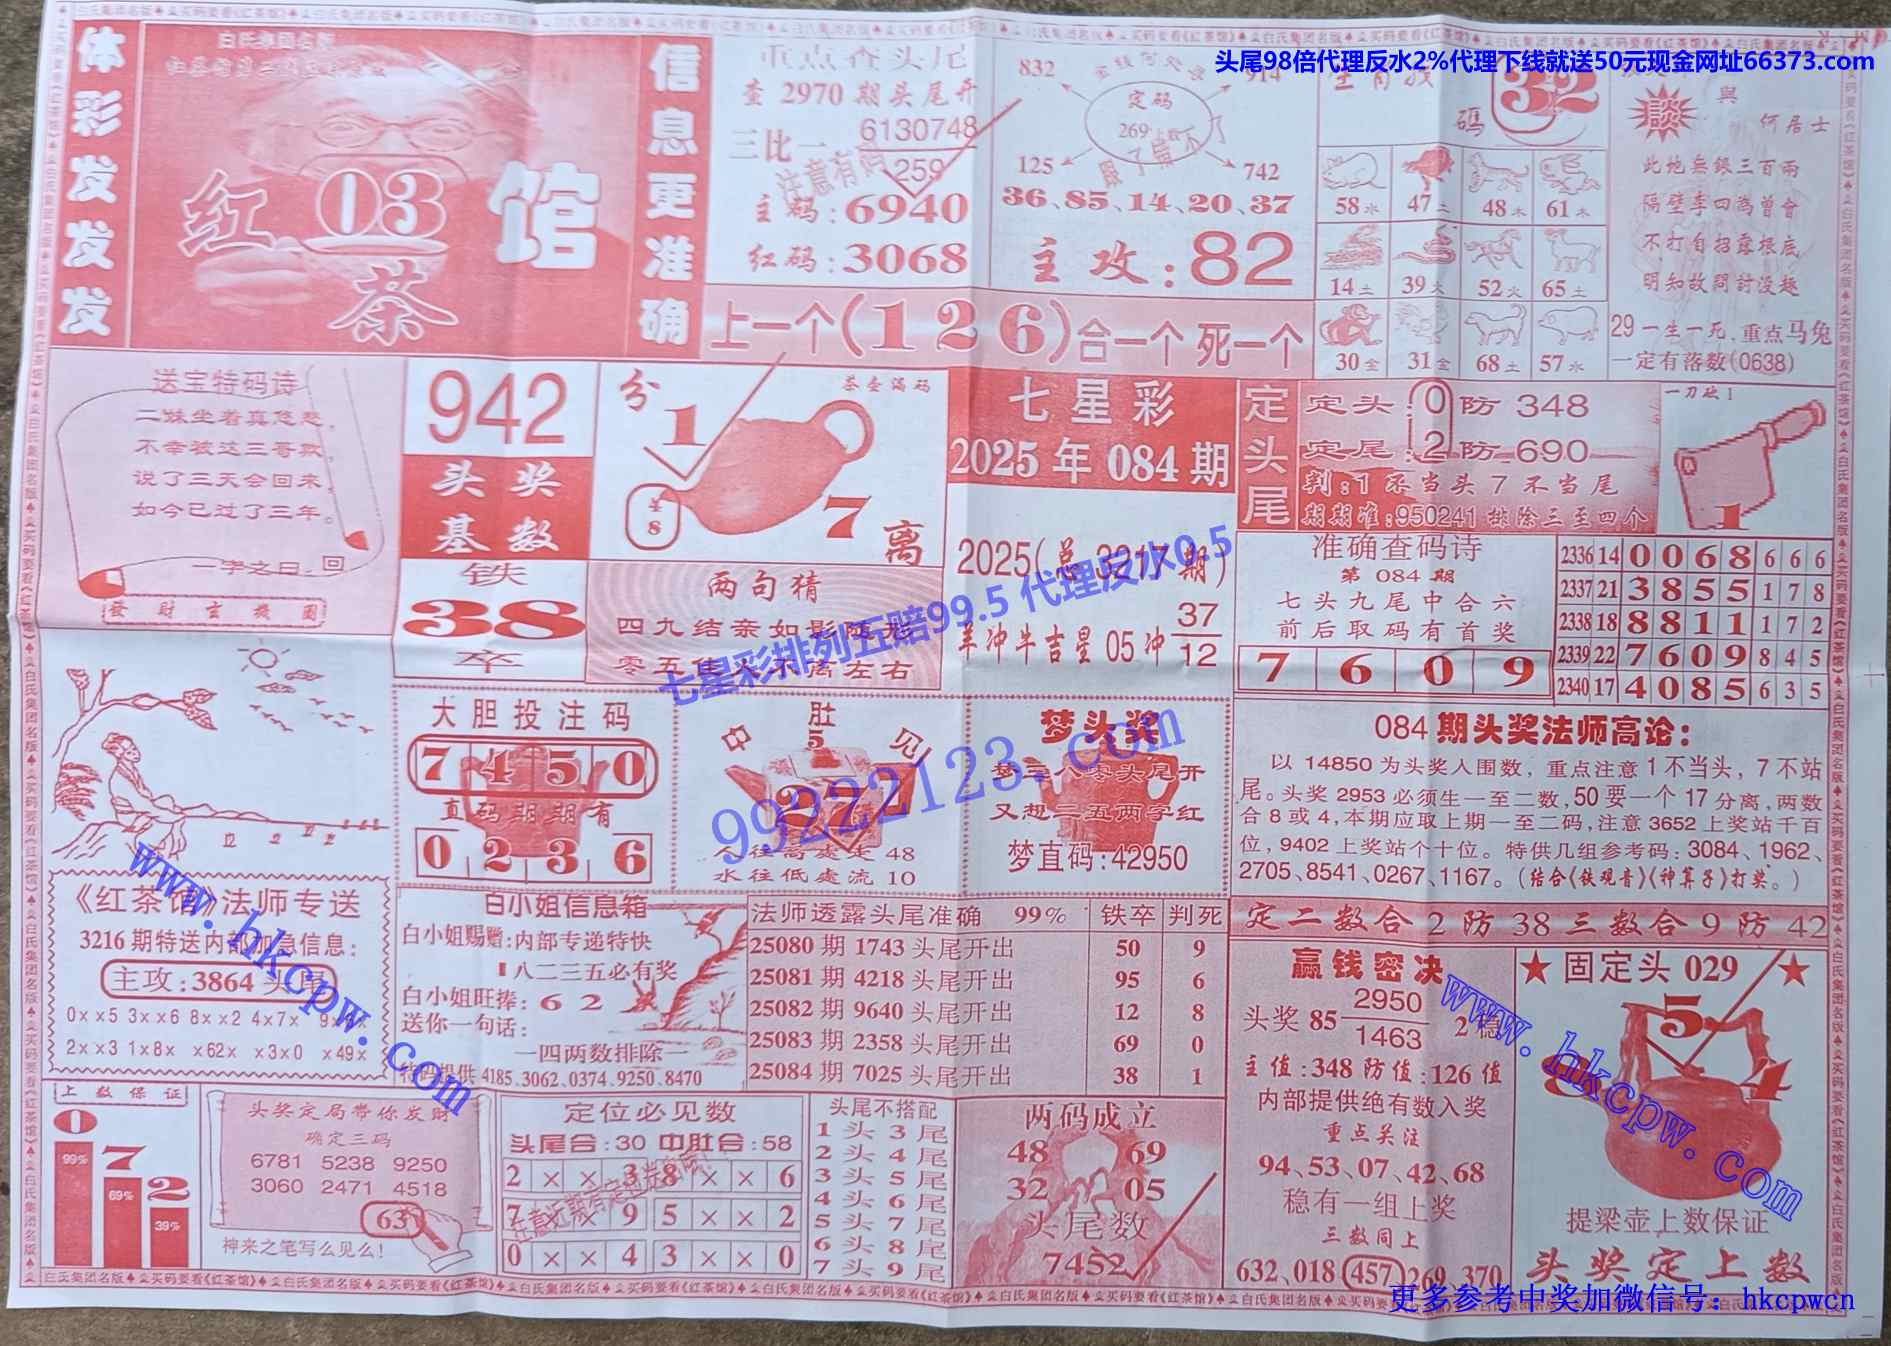 头尾98倍代理反水2%代理下线就送50元现金网址66373.com
体彩发发发
白氏集团名版
红03馆
茶
信息更准确
重点查头尾
查 2970 期头尾开
三比一 6130748
259
注意有码
主码:6940
红码:3068
832
914
定码
269上数
125
742
36、85、14、20、37
主攻:82
上一个(126)合一个 死一个
生肖
碼
32
58水 47土 48木 61木
14土 39火 52火 65土
30金 31金 68土 57水
談
與
何居士
此地無銀三百兩
隔壁李四為曾會
不打自招露根底
明知故問討沒趣
29一生一死,重点马兔
一定有落数(0638)
送宝特码诗
二妹坐着真悠愁,
不幸被这三哥欺,
说了三天会回来,
如今已过了三年。
一字之曰:回
發財玄機圖
942
头奖
基数
铁
38
卒
分
1
茶壶漏码
48
7
离
两句猜
四九结亲如影随形
零五信人不离左右
七星彩
2025年084期
2025(总3217期)
羊冲牛吉星 05 冲 37
12
七星彩排列五赔99.5 代理反水0.5
定头尾
定头:0防 348
定尾:2防 690
判:1 不当头 7 不当尾
期期准:950241 排除三至四个
一刀砍 1
1
准确查码诗
第 084 期
七头九尾中合六
前后取码有首奖
7 6 0 9
2336 14 0 0 6 8 6 6 6
2337 21 3 8 5 5 1 7 8
2338 18 8 8 1 1 1 7 2
2339 22 7 6 0 9 8 4 5
2340 17 4 0 8 5 6 3 5
大胆投注码
7 4 5 0
真码期期有
0 2 3 6
肚
中 5 见
27
水往高處走 48
水往低處流 10
梦头奖
梦三八零头尾开
又想二五两字红
梦直码:42950
99222123.com
084期头奖法师高论:
以 14850 为头奖人围数，重点注意1不当头，7不站
尾。头奖 2953 必须生一至二数,50要一个17分离,两数
合8或4,本期应取上期一至二码,注意 3652 上奖站千百
位,9402 上奖站个十位。特供几组参考码:3084、1962、
2705、8541、0267、1167。(结合《铁观音》《神算子》打奖。)
《红茶馆》法师专送
3216期特送内部加急信息:
主攻:3864 头尾
0××5 3××6 8××2 4×7×
2××3 1×8× ×62× ×3×0 ×49×
www.hkcpw.com
白小姐信息箱
白小姐赐赠:内部专递特快
八二三五必有奖
白小姐旺捧: 6 2
送你一句话:
—四两数排除—
特码提供 4185.3062.0374.9250.8470
法师透露头尾准确 99% 铁卒 判死
25080期 1743 头尾开出 50 9
25081期 4218 头尾开出 95 6
25082期 9640 头尾开出 12 8
25083期 2358 头尾开出 69 0
25084期 7025 头尾开出 38 1
定二数合 2 防 38 三数合 9 防 42
赢钱密决
头奖 85 2950
1463
2 稳
主值:348 防值:126 值
内部提供绝有数入奖
重点关注
94、53、07、42、68
稳有一组上奖
三数同上
632、018 457 269、370
★固定头 029★
5
8
4
提梁壶上数保证
头奖定上数
www.hkcpw.com
上数保证
0
7
2
99%
69%
39%
头奖定局带你发财
确定三码
6781 5238 9250
3060 2471 4518
63
神来之笔写么见么!
定位必见数
头尾合:30 中肚合:58
2 × × 3 8 × × 6
7 × × 9 5 × × 2
0 × × 4 3 × × 0
头尾不搭配
1 头 3 尾
2 头 4 尾
3 头 5 尾
4 头 6 尾
5 头 7 尾
6 头 8 尾
7 头 9 尾
两码成立
48 69
32 05
头尾数
7452
更多参考中奖加微信号：hkcpwcn